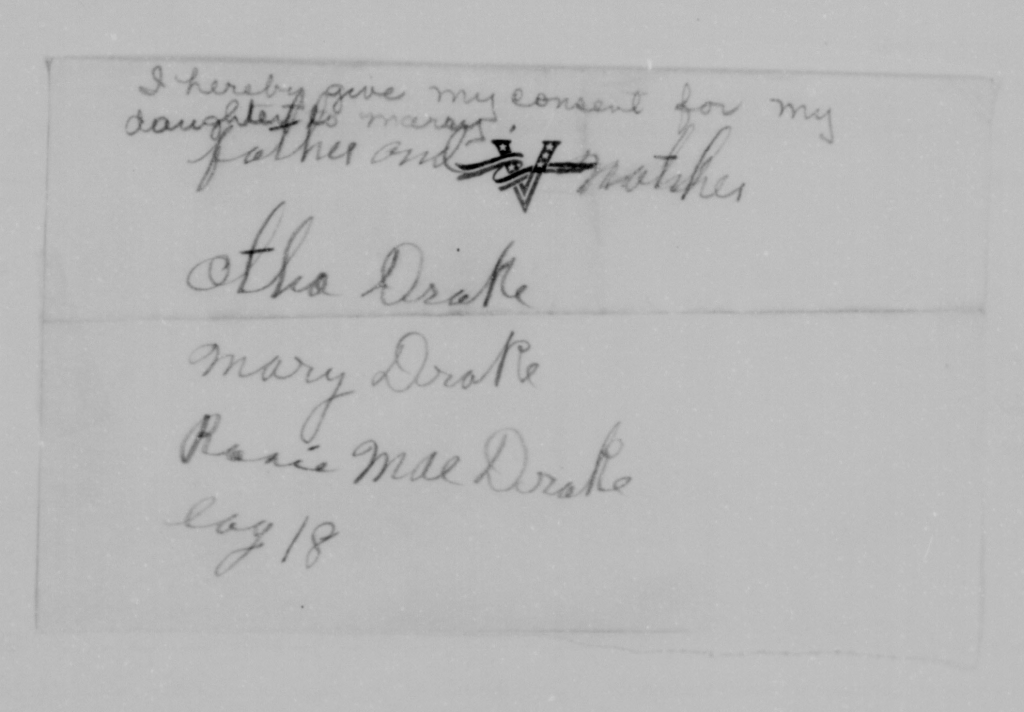 I hereby give my consent for my
daughter to marry.
father and mother
Otho Drake
Mary Drake
Mae Drake
eag 18